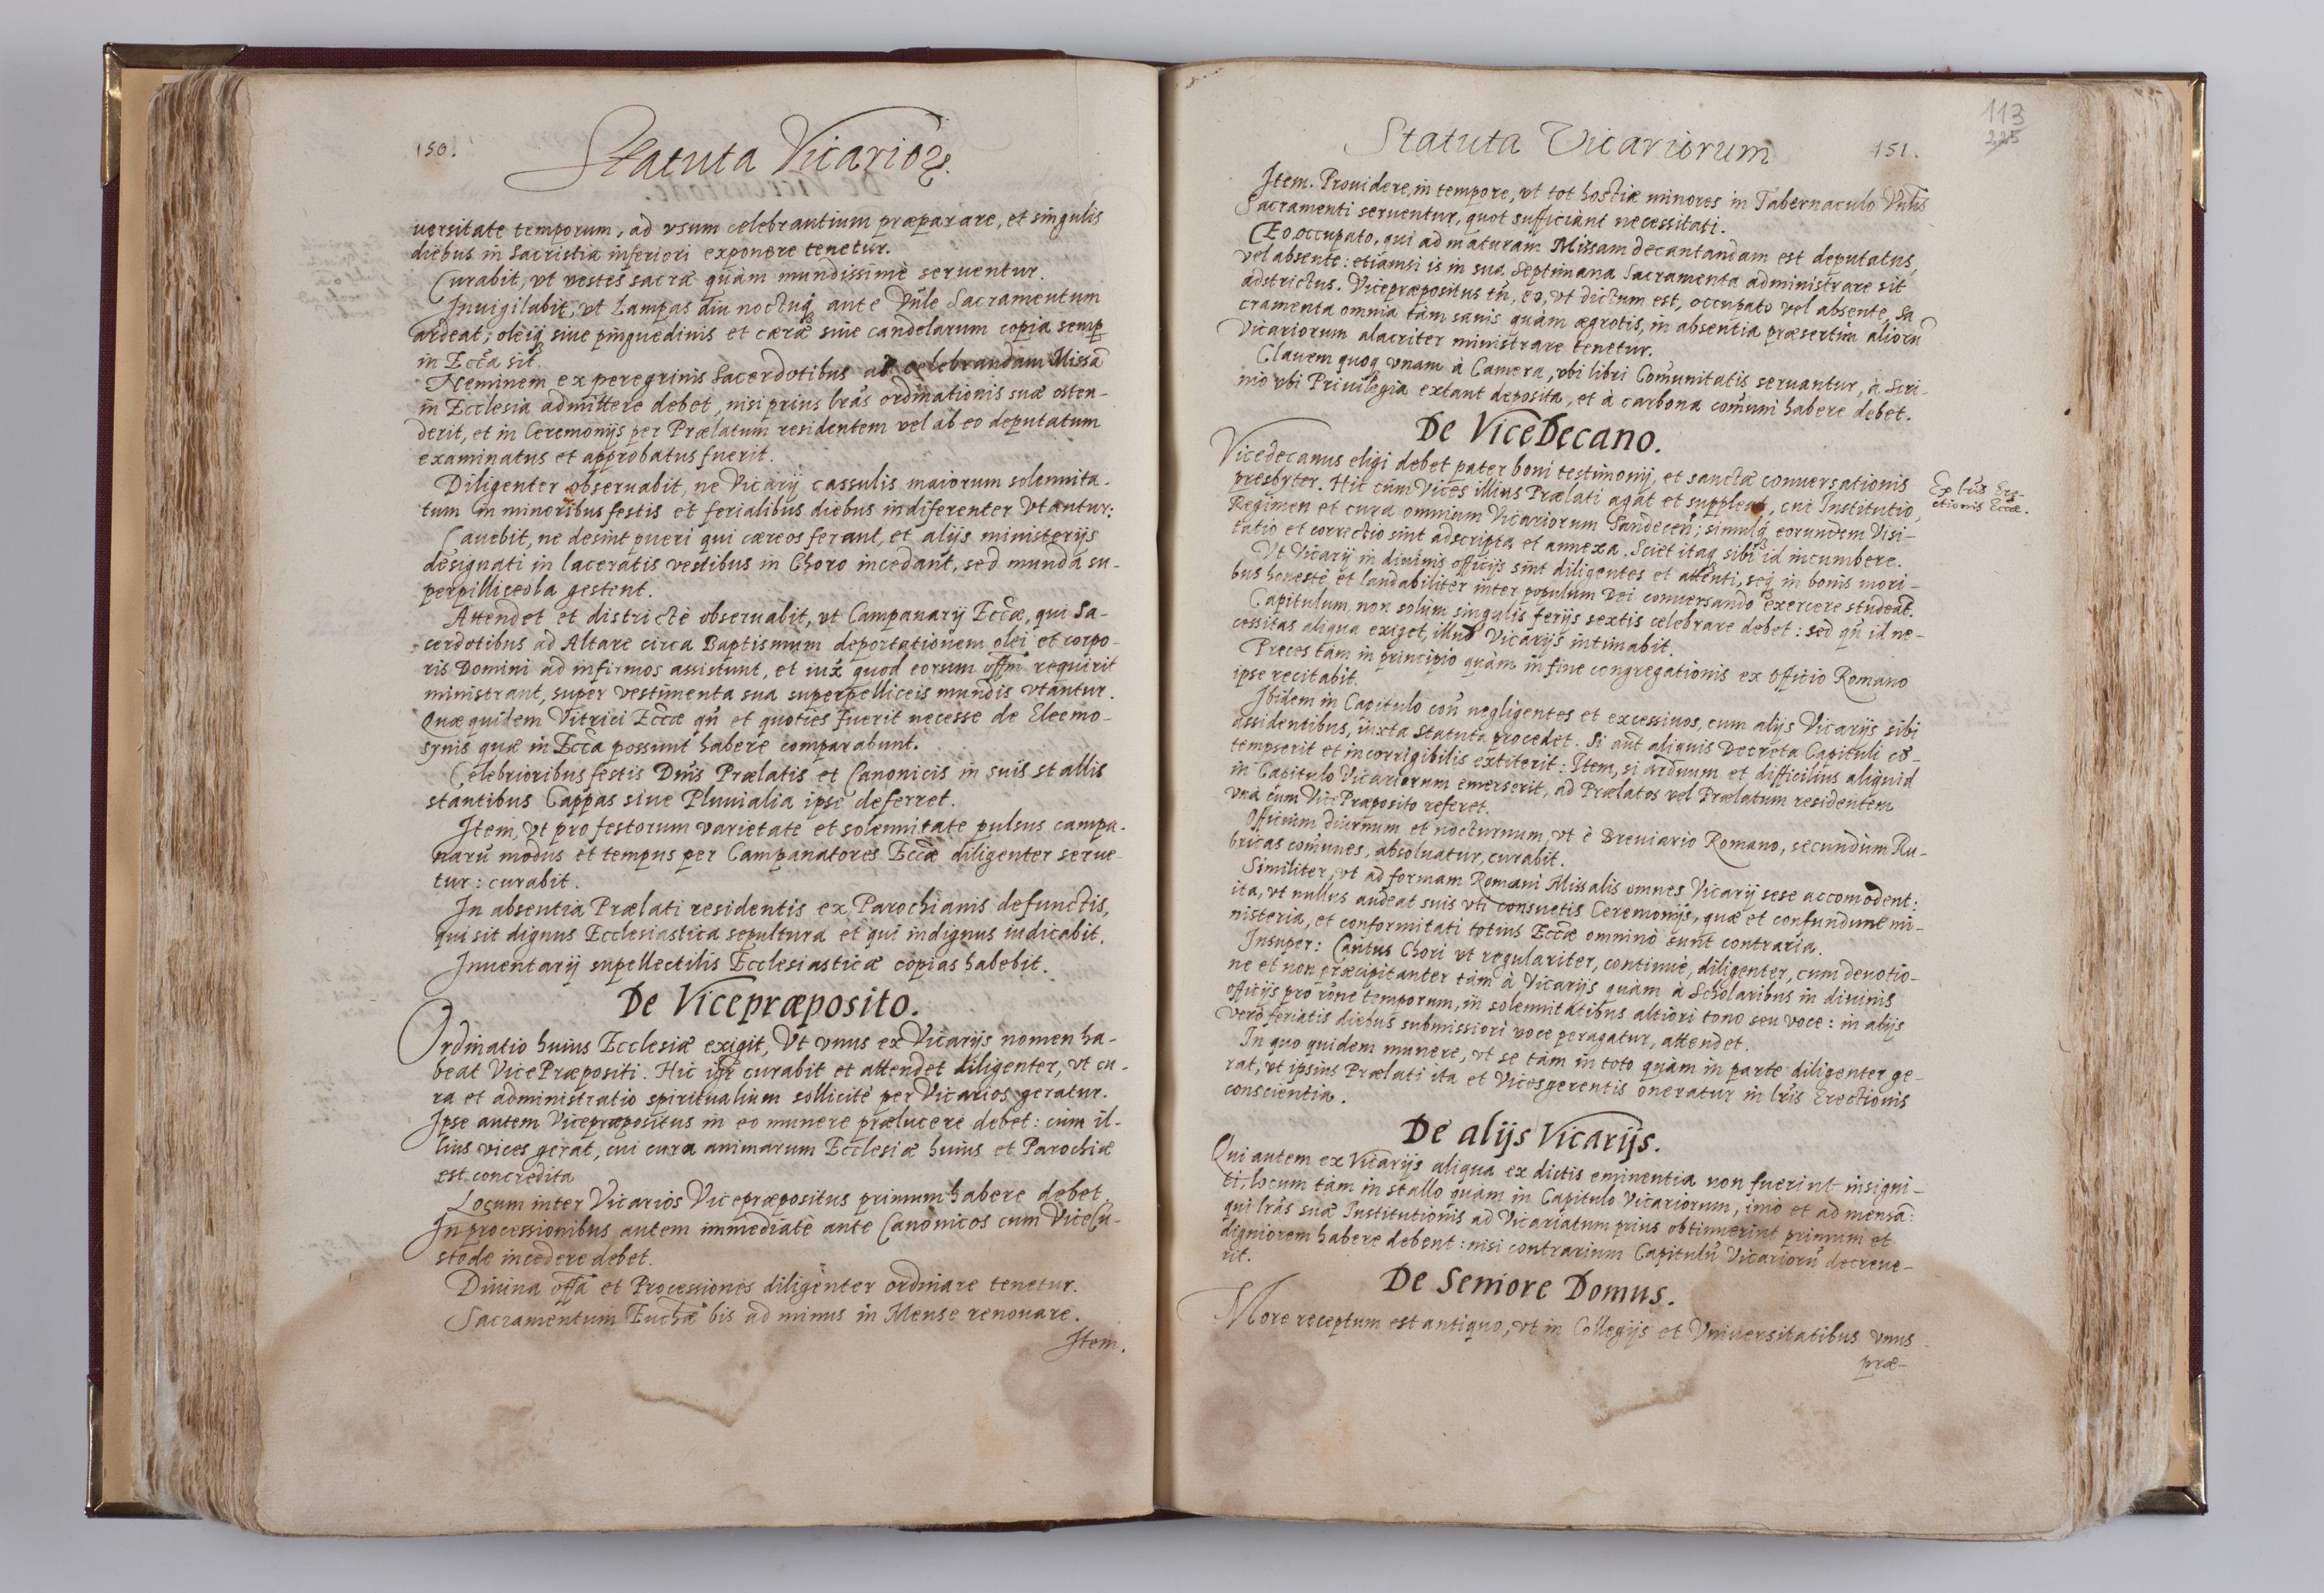 150.
Statuta Vicarioꝝ.
uersitate temporum, ad vsum celebrantium præparare, et singulis
diebus in Sacristia inferiori exponere tenetur.
Curabit, vt vestes sacræ quàm mundissimè seruentur.
Inuigilabit, vt Lampas diu noctuq̃ ante Vñle Sacramentum
ardeat, oleiq̃ siue pinguedinis et cæræ siue candelarum copia semp
in Eccã sit.
Neminem ex peregrinis Sacerdotibus ad celebrandam Missã
in Ecclesia admittere debet, nisi prius lr̃as ordinationis suæ osten-
derit, et in Ceremonijs per Prælatum residentem vel ab eo deputatum
examinatus et approbatus fuerit.
Diligenter obseruabit, ne Vicarij cassulis maiorum solennita-
tum in minoribus festis et ferialibus diebus indiferenter vtantur:
Cauebit, ne desint pueri qui cæreos ferant, et alijs ministerijs
designati in laceratis vestibus in Choro incedant, sed munda su-
perpilliceola gestent.
Attendet et districtè obseruabit, vt Campanarij Eccæ, qui Sa-
cerdotibus ad Altare circa Baptismum deportationem olei et corpo-
ris Domini ad infirmos assistunt, et iux̃ quod eorum offm̃ requirit
ministrant, super vestimenta sua superpelliceis mundis vtantur.
Quæ quidem Vitrici Eccæ qñ et quoties fuerit necesse de Eleemo-
synis quæ in Eccã possunt habere comparabunt.
Celebrioribus festis Dñis Prælatis et Canonicis in suis stallis
stantibus Cappas siue Pluuialia ipse deferret.
Item, vt pro festorum varietate et solennitate pulsus campa-
narũ modus et tempus per Campanatores Eccæ diligenter serue-
tur: curabit.
In absentia Prælati residentis ex Parochianis defunctis,
qui sit dignus Ecclesiastica sepultura et qui indignus iudicabit.
Inuentarij supellectilis Ecclesiasticæ copias habebit.
De Vicepræposito.
Ordinatio huius Ecclesiæ exigit, Vt vnus ex Vicarijs nomen ha-
beat VicePræpositi. Hic igr̃ curabit et attendet diligenter, vt cu-
ra et administratio spiritualium sollicitè per Vicarios geratur.
Ipse autem Vicepræpositus in eo munere prælucere debet: cùm il-
lius vices gerat, cui cura animarum Ecclesiæ huius et Parochiæ
est concredita
Locum inter Vicarios Vicepræpositus primum habere debet.
In processionibus autem immediatè ante Canonicos cum ViceCu-
stode incedere debet.
Diuina offã et Processiones diligenter ordinare tenetur.
Sacramentum Euchæ̃ bis ad minus in Mense renouare.
Item.
113
225
Statuta Vicariorum
151.
Item. Prouidere, in tempore, vt tot hostiæ minores in Tabernaculo Vñlis
Sacramenti seruentur, quot sufficiant necessitati.
Eo occupato, qui ad maturam Missam decantandam est deputatus,
vel absente: etiamsi is in sua Septimana Sacramenta administrare sit
adstrictus. Vicepræpositus tñ, eo, vt dictum est, occupato vel absente, Sa
cramenta omnia tàm sanis quàm ægrotis, in absentia præsertim aliorũ
Vicariorum alacriter ministrare tenetur.
Clauem quoq̃ vnam à Camera, vbi libri Com̃unitatis seruantur, à Scri-
nio vbi Priuilegia extant deposita, et à carbona com̃uni habere debet.
De ViceDecano.
Vicedecanus eligi debet pater boni testimonij, et sanctæ conuersationis
presbyter. Hic cùm Vices illius Prælati agat et suppleat, cui Institutio,
Regimen et cura omnium Vicariorum Sandeceñ; simulq̃ eorundem Visi-
tatio et correctio sint adscripta et annexa. Sciet itaq̃ sibi id incumbere.
Ex lr̃is Ere-
ctionis Eccæ.
Vt Vicarij in diuinis officijs sint diligentes et attenti, seq̃ in bonis mori-
bus honestè et laudabiliter inter populum Dei conuersando exercere studeãt.
Capitulum, non solùm singulis ferijs sextis celebrare debet: sed qñ id ne-
cessitas aliqua exiget, illud Vicarijs intimabit.
Preces tàm in principio quàm in fine congregationis ex Officio Romano
ipse recitabit.
Ibidem in Capitulo con̄ negligentes et excessiuos, cum alijs Vicarijs sibi
assidentibus, iuxta Statuta procedet. Si aũt aliquis Decreta Capituli cõ-
tempserit et incorrigibilis extiterit: Item, si arduum et difficilius aliquid
in Capitulo Vicariorum emerserit, ad Prælatos vel Prælatum residentem
vnà cum VicePræposito referet.
Officium diurnum et nocturnum, vt è Breuiario Romano, secundùm Ru-
bricas com̃unes, absoluatur, curabit.
Similiter, vt ad formam Romani Missalis omnes Vicarij sese accomodent:
ita, vt nullus audeat suis vti consuetis Ceremonijs, quæ et confundunt mi-
nisteria, et conformitati totius Eccæ omninò sunt contraria.
Insuper: Cantus Chori vt regulariter, continuè, diligenter, cum deuotio-
ne et non præcipitanter tàm à Vicarijs quàm à Scholaribus in diuinis
officijs pro rõne temporum, in solennitatibus altiori tono seu voce: in alijs
verò feriatis diebus submissiori voce peragatur, attendet.
In quo quidem munere, vt se tàm in toto quàm in parte diligenter ge-
rat, vt ipsius Prælati ita et Vicesgerentis oneratur in lr̃is Erectionis
conscientia.
De alijs Vicarijs.
Qui autem ex Vicarijs aliqua ex dictis eminentia non fuerint insigni-
ti, locum tàm in stallo quàm in Capitulo Vicariorum, imò et ad mensã:
qui lr̃as suæ Institutionis ad Vicariatum prius obtinuerint primum et
digniorem habere debent: nisi contrarium Capitulũ Vicariorũ decreue-
rit.
De Seniore Domus.
More receptum est antiquo, vt in Collegijs et Vniuersitatibus vnus
præ-